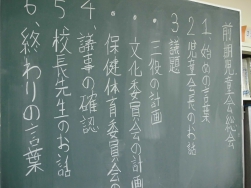 前期児童会総会
1 始めの言葉
2 児童会長のお話
3 議題
・三役の計画
・文化委員会の計画
・保健体育委員会の
4、議事の確認
5 校長先生のお話
6、終わりの言葉